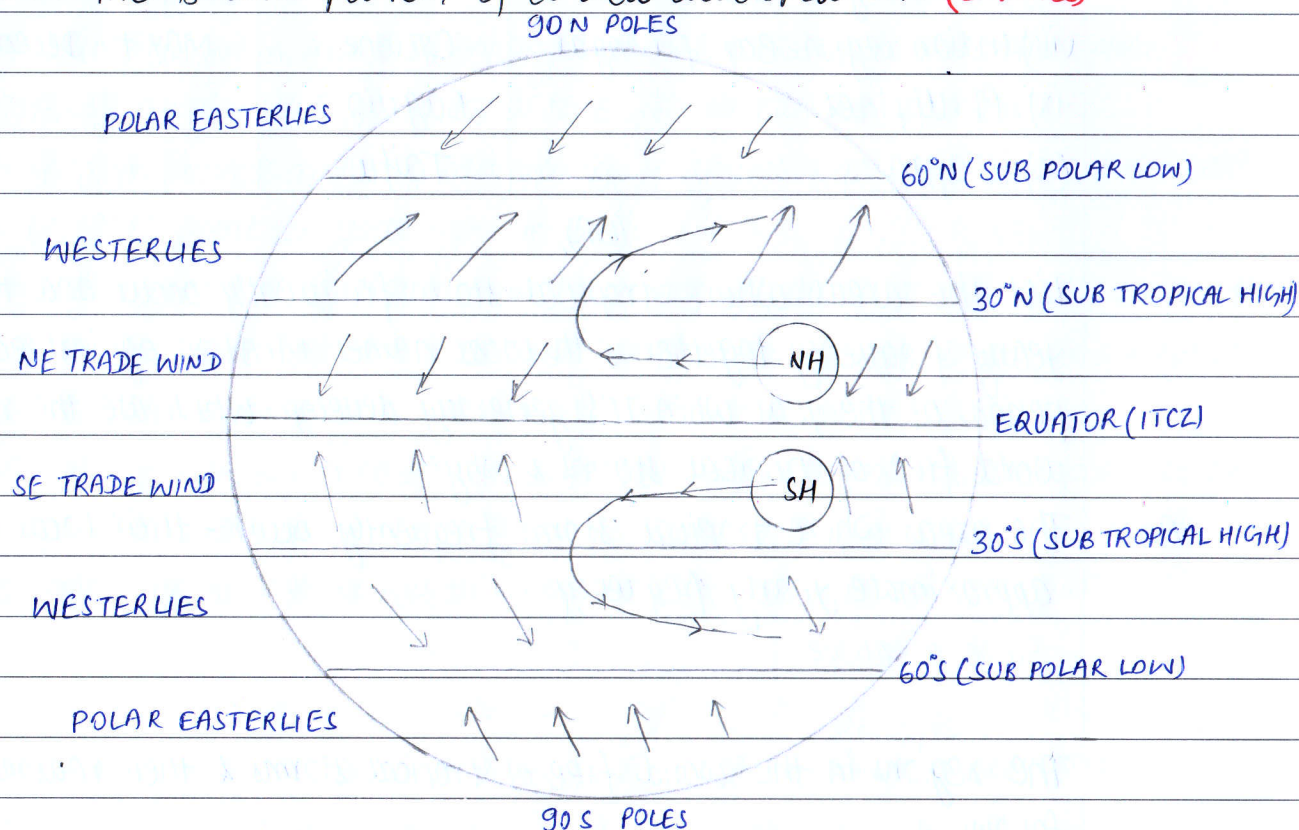 90 N POLES
POLAR EASTERLIES
60°N (SUB POLAR LOW)
WESTERLIES
30°N (SUB TROPICAL HIGH)
NE TRADE WIND
NH
EQUATOR (ITCZ)
SE TRADE WIND
SH
30°S (SUB TROPICAL HIGH)
WESTERLIES
60°S (SUB POLAR LOW)
POLAR EASTERLIES
90 S POLES